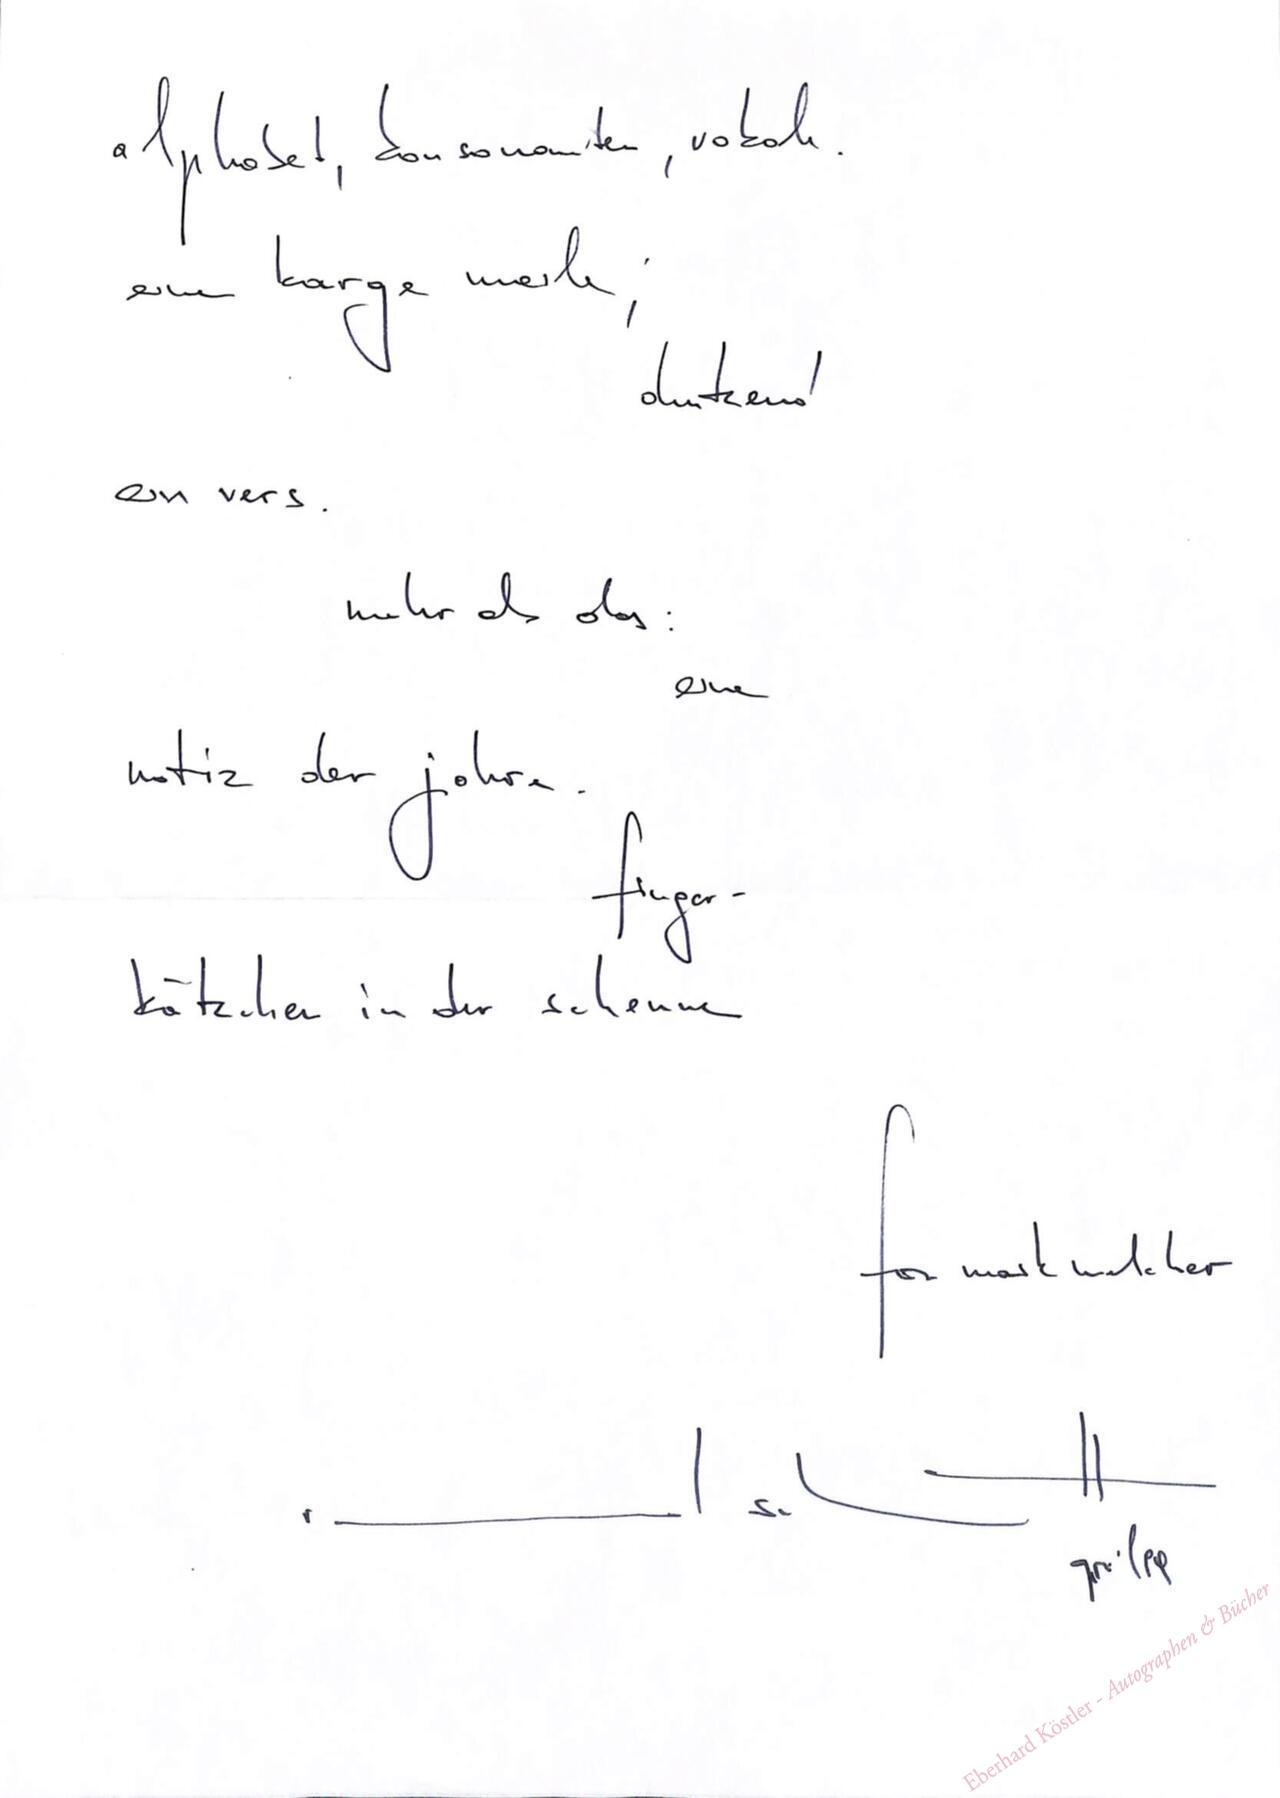 alphabet, konsonanten, vokale.
eine karge meile;
dutzend
ein vers.
mehr als das:
eine
notiz der jahre.
finger-
kätzchen in der scheune
for mark melcher
Eberhard Köstler - Autographen & Bücher